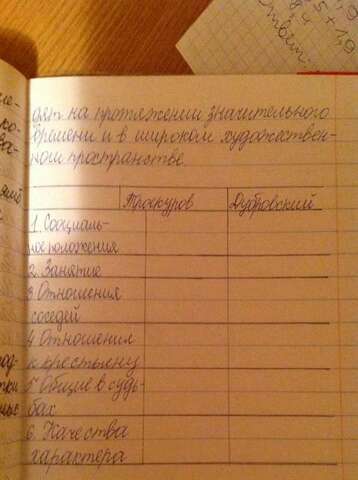 дят на протяжении значительного
времени и в широком художествен-
ном пространстве.
Троекуров Дубровский
1. Социаль-
ное положения
2. Занятие
3 Отношения
соседей
4 Отношения
к крестьяну
5 Общие в судь-
бах
6. Качества
характера
5 + 1,9
Ответ: